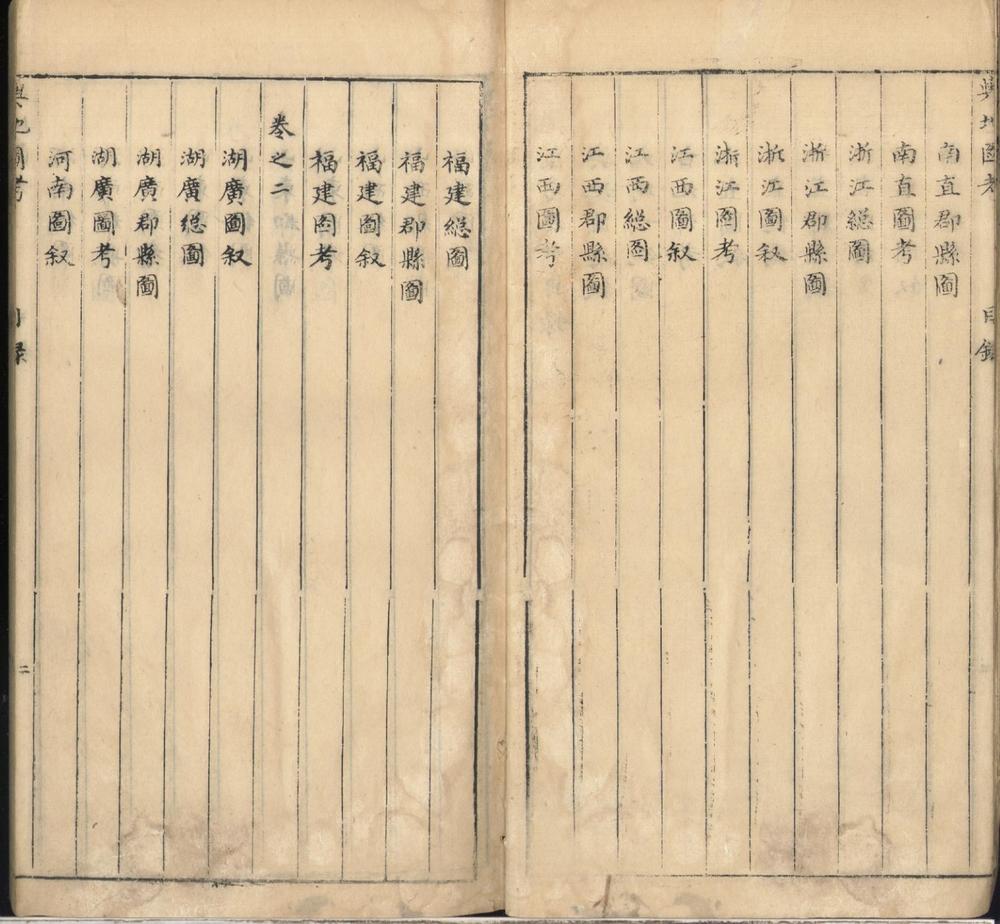 輿地圖考
目錄
南直郡縣圖
南直圖考
浙江總圖
浙江郡縣圖
浙江圖叙
浙江圖考
江西圖叙
江西總圖
江西郡縣圖
江西圖考
福建總圖
福建郡縣圖
福建圖叙
福建圖考
卷之二
湖廣圖叙
湖廣總圖
湖廣郡縣圖
湖廣圖考
河南圖叙
輿地圖考
目錄
二